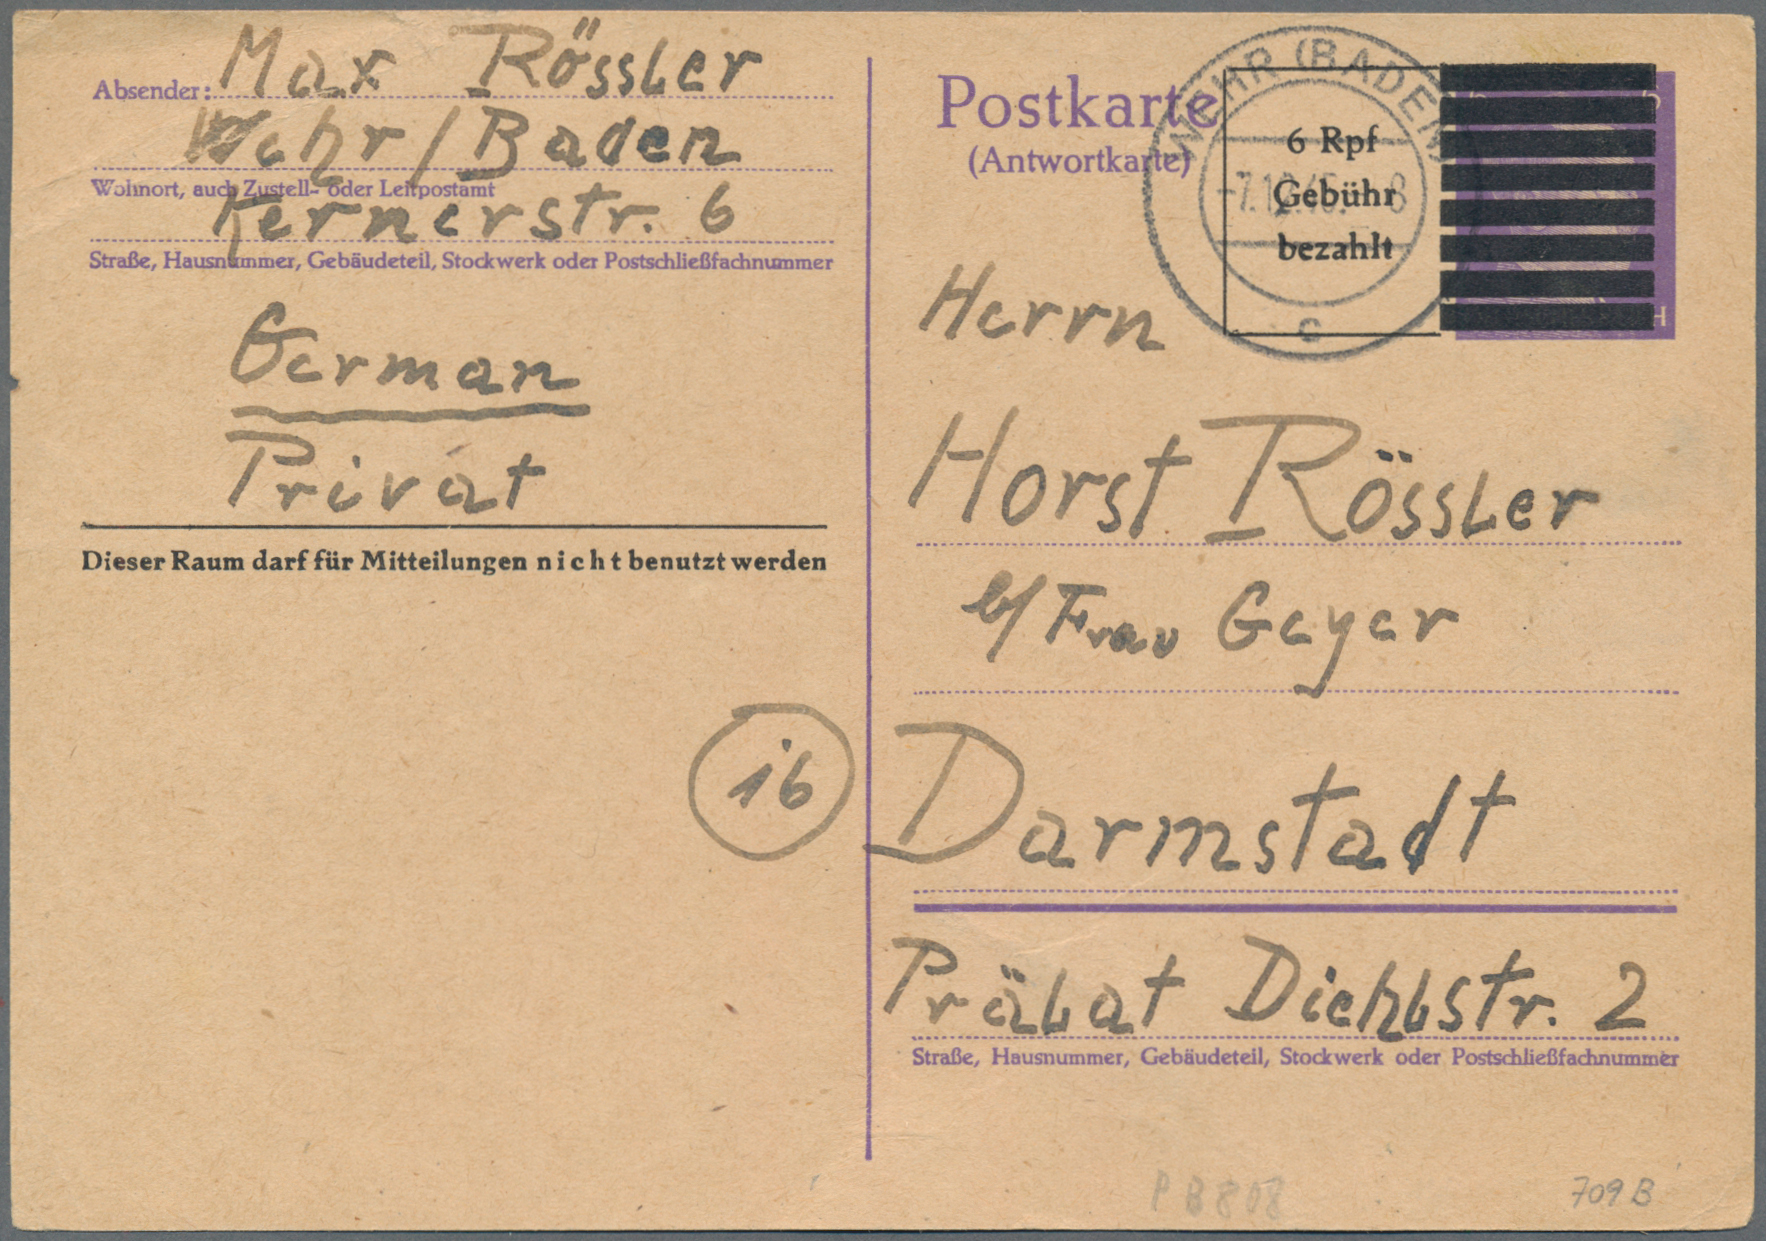 Absender: Max Rössler
Wehr/Baden
Wohnort, auch Zustell- oder Leitpostamt
Kernerstr. 6
Straße, Hausnummer, Gebäudeteil, Stockwerk oder Postschließfachnummer
German
Privat
Dieser Raum darf für Mitteilungen nicht benutzt werden
16
Postkarte
(Antwortkarte)
WEHR (BADEN)
c
6 Rpf
Gebühr
bezahlt
Herrn
Horst Rössler
b/ Frau Geyer
Darmstadt
Prälat Diehlstr. 2
Straße, Hausnummer, Gebäudeteil, Stockwerk oder Postschließfachnummer
P B 808
709 B